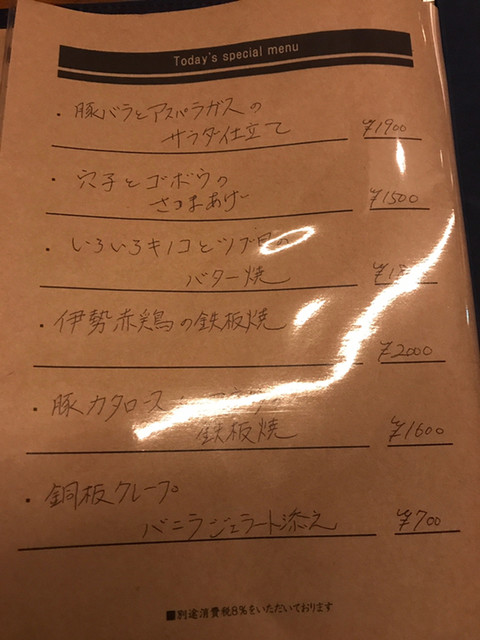 Today's special menu
・豚バラとアスパラガスの
サラダ仕立て ¥1900
・穴子とゴボウの
さつまあげ ¥1500
・いろいろキノコとツブ貝の
バター焼
・伊勢赤鶏の鉄板焼
¥2000
・豚カタロース
鉄板焼 ¥1600
・銅板クレープ
バニラジェラート添え ¥700
■別途消費税8%をいただいております